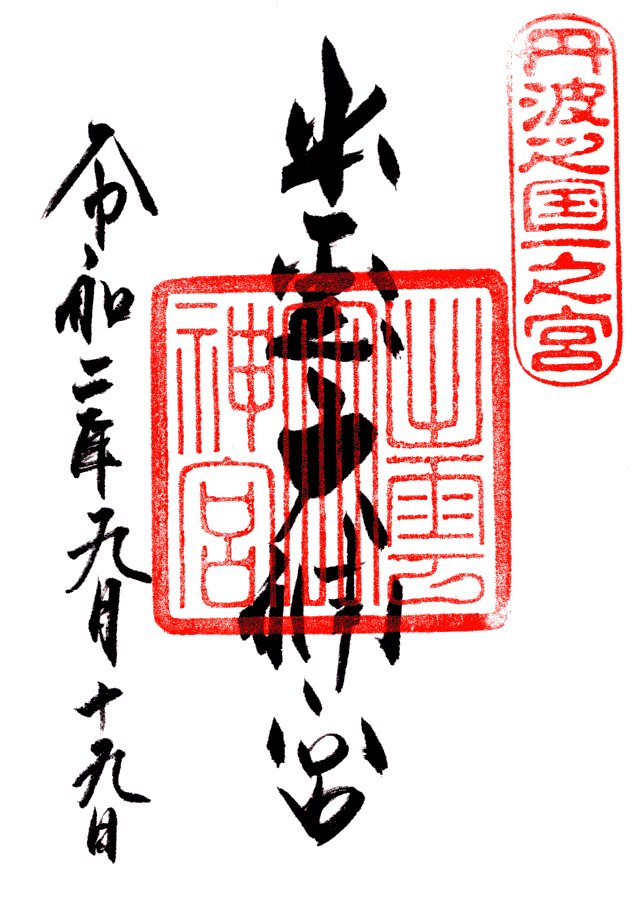 丹波之国一之宮
出雲大神宮
出雲大神宮
令和二年九月十九日